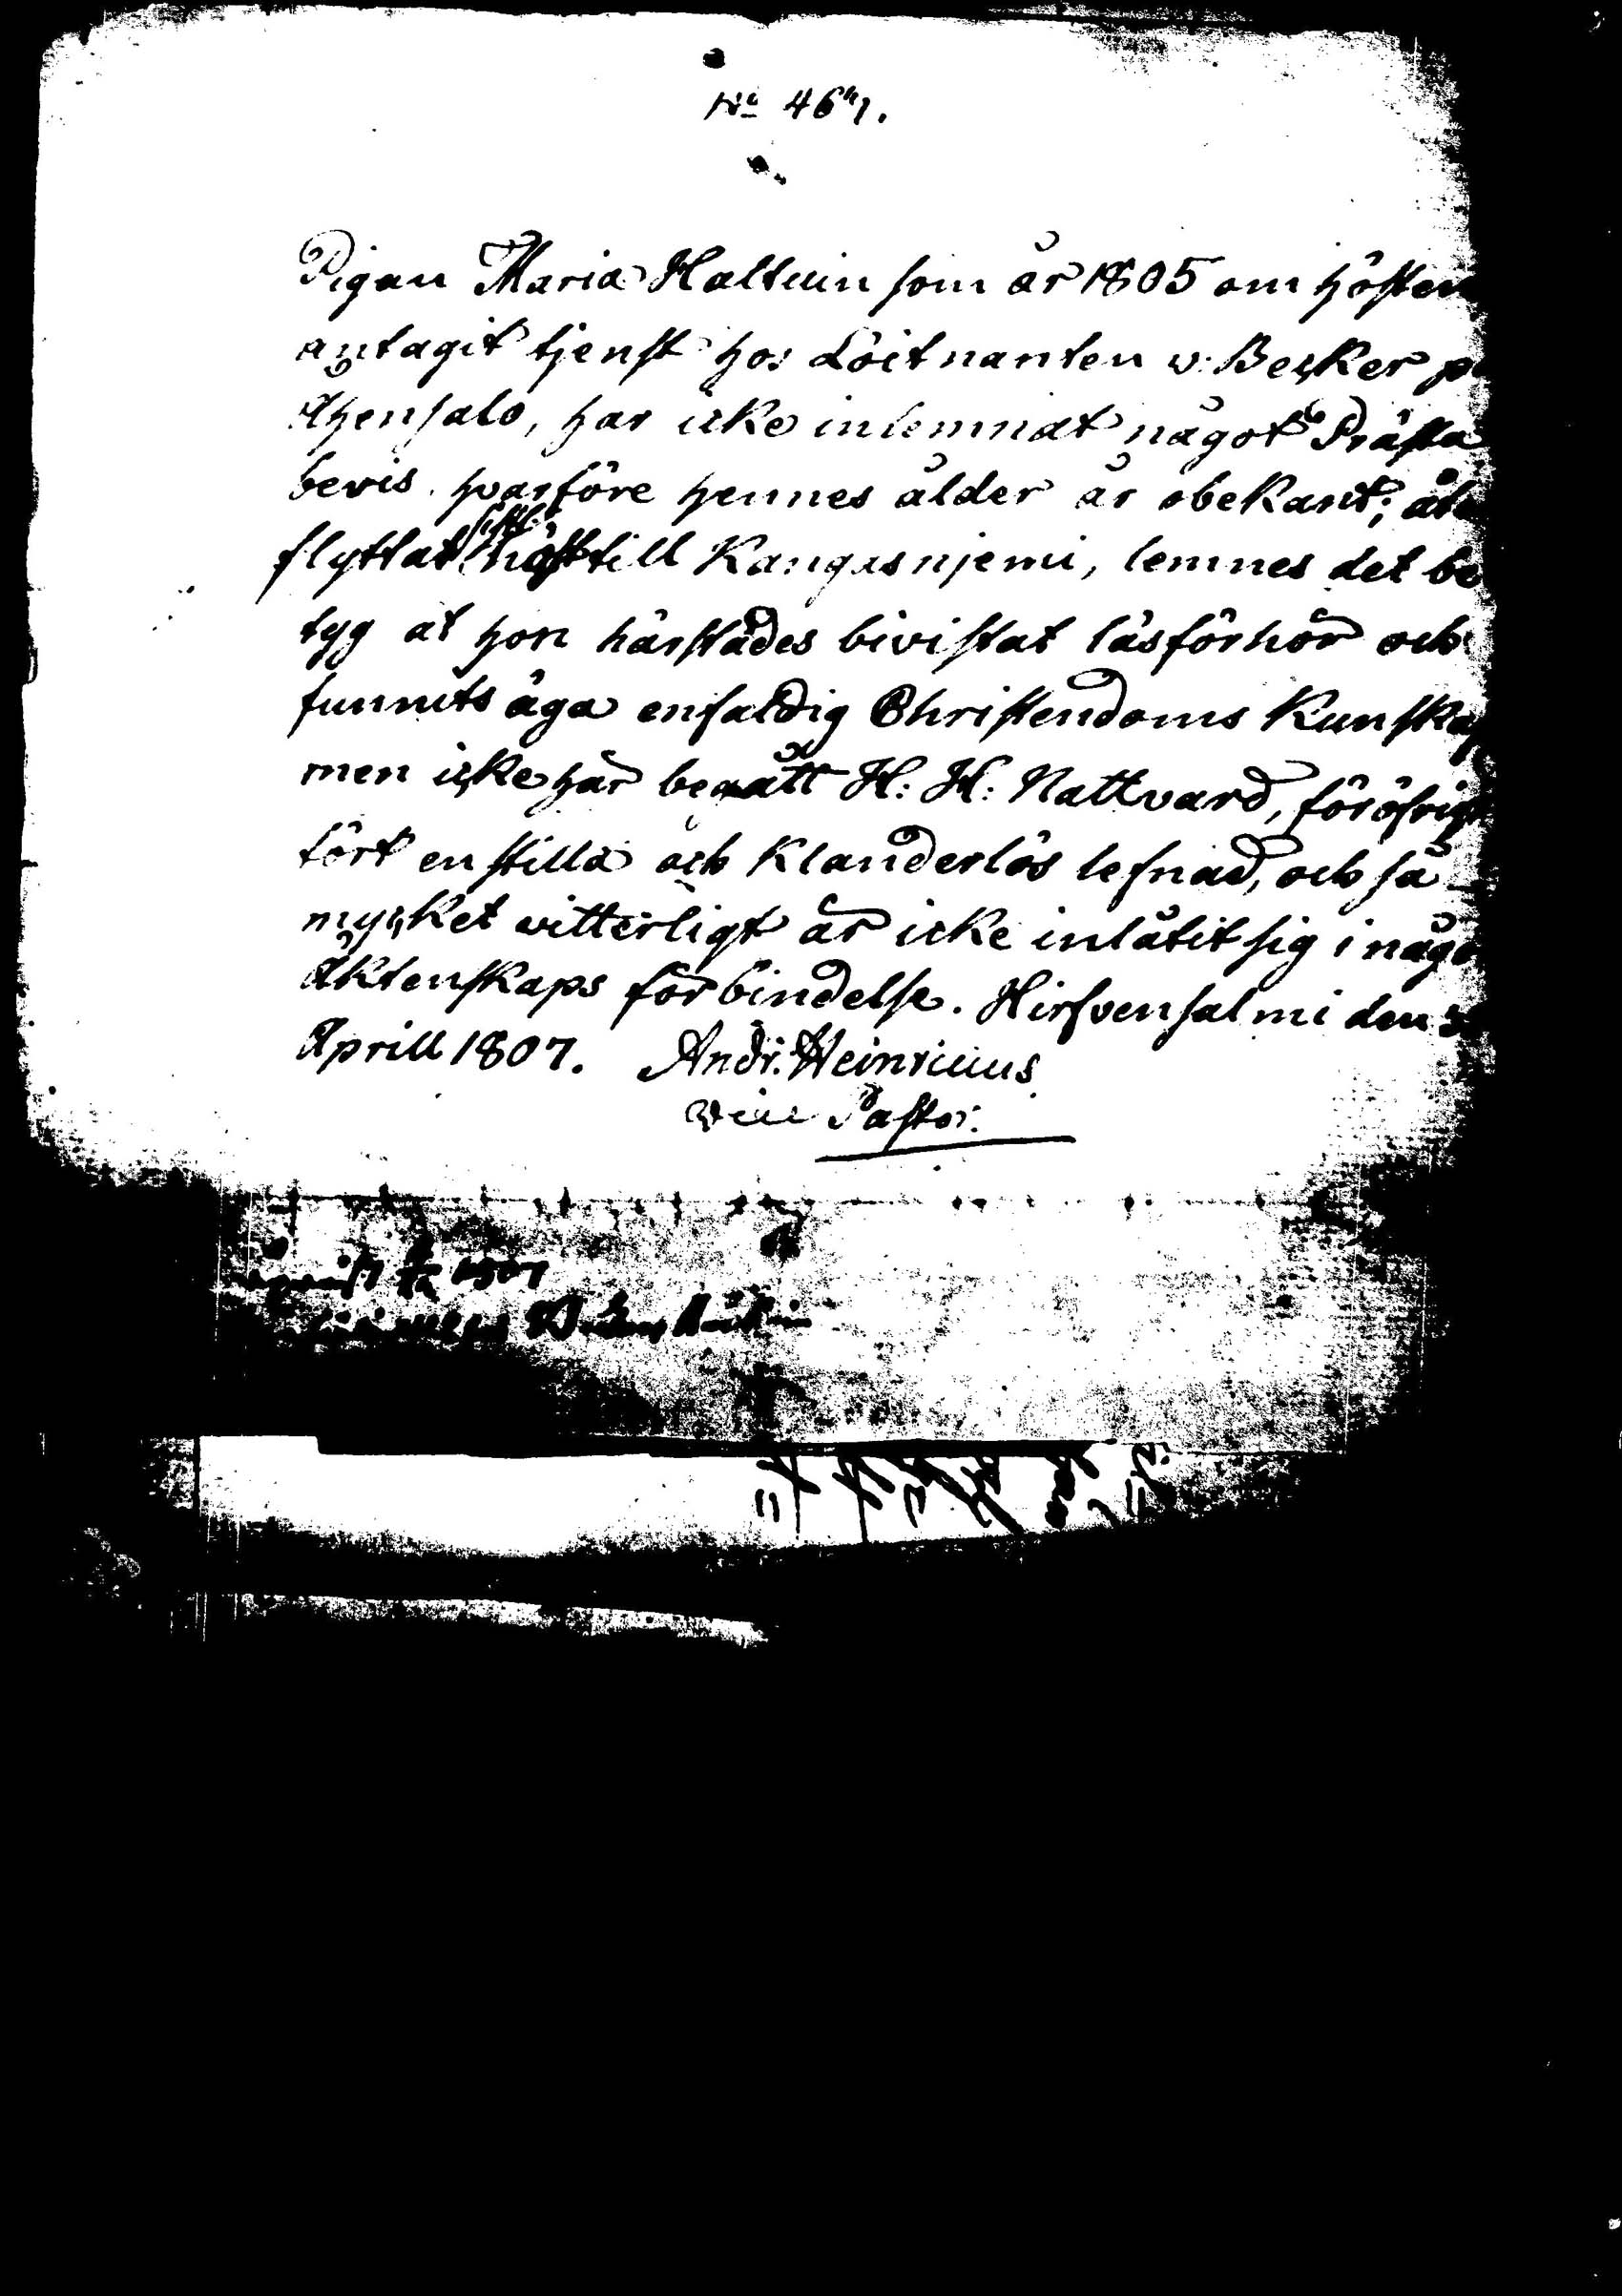 No 467.
Pigan Maria Halttuin som år 1805 om hösten
antagit tjenst hos Löitnanten v: Becker
Ahensalo, har icke inlemnat något Prästa
bevis, hvarföre hennes ålder är obekant;
flyttat sistl: höst till Kangasnjemi, lemnes det be
tyg at hon härstädes bivistat läsförhör och
funnits äga enfaldig Christendoms Kunskap
men icke här begått H: H: Nattvard, föröfrigt
fört en stilla och Klanderlös lefnad, och så
mycket vitterligt är icke inlåtit sig i någo
Äktenskaps förbindelse. Hirfvensalmi den
Aprill 1807. Andr. Heinricius
Vice Pastor.
1807